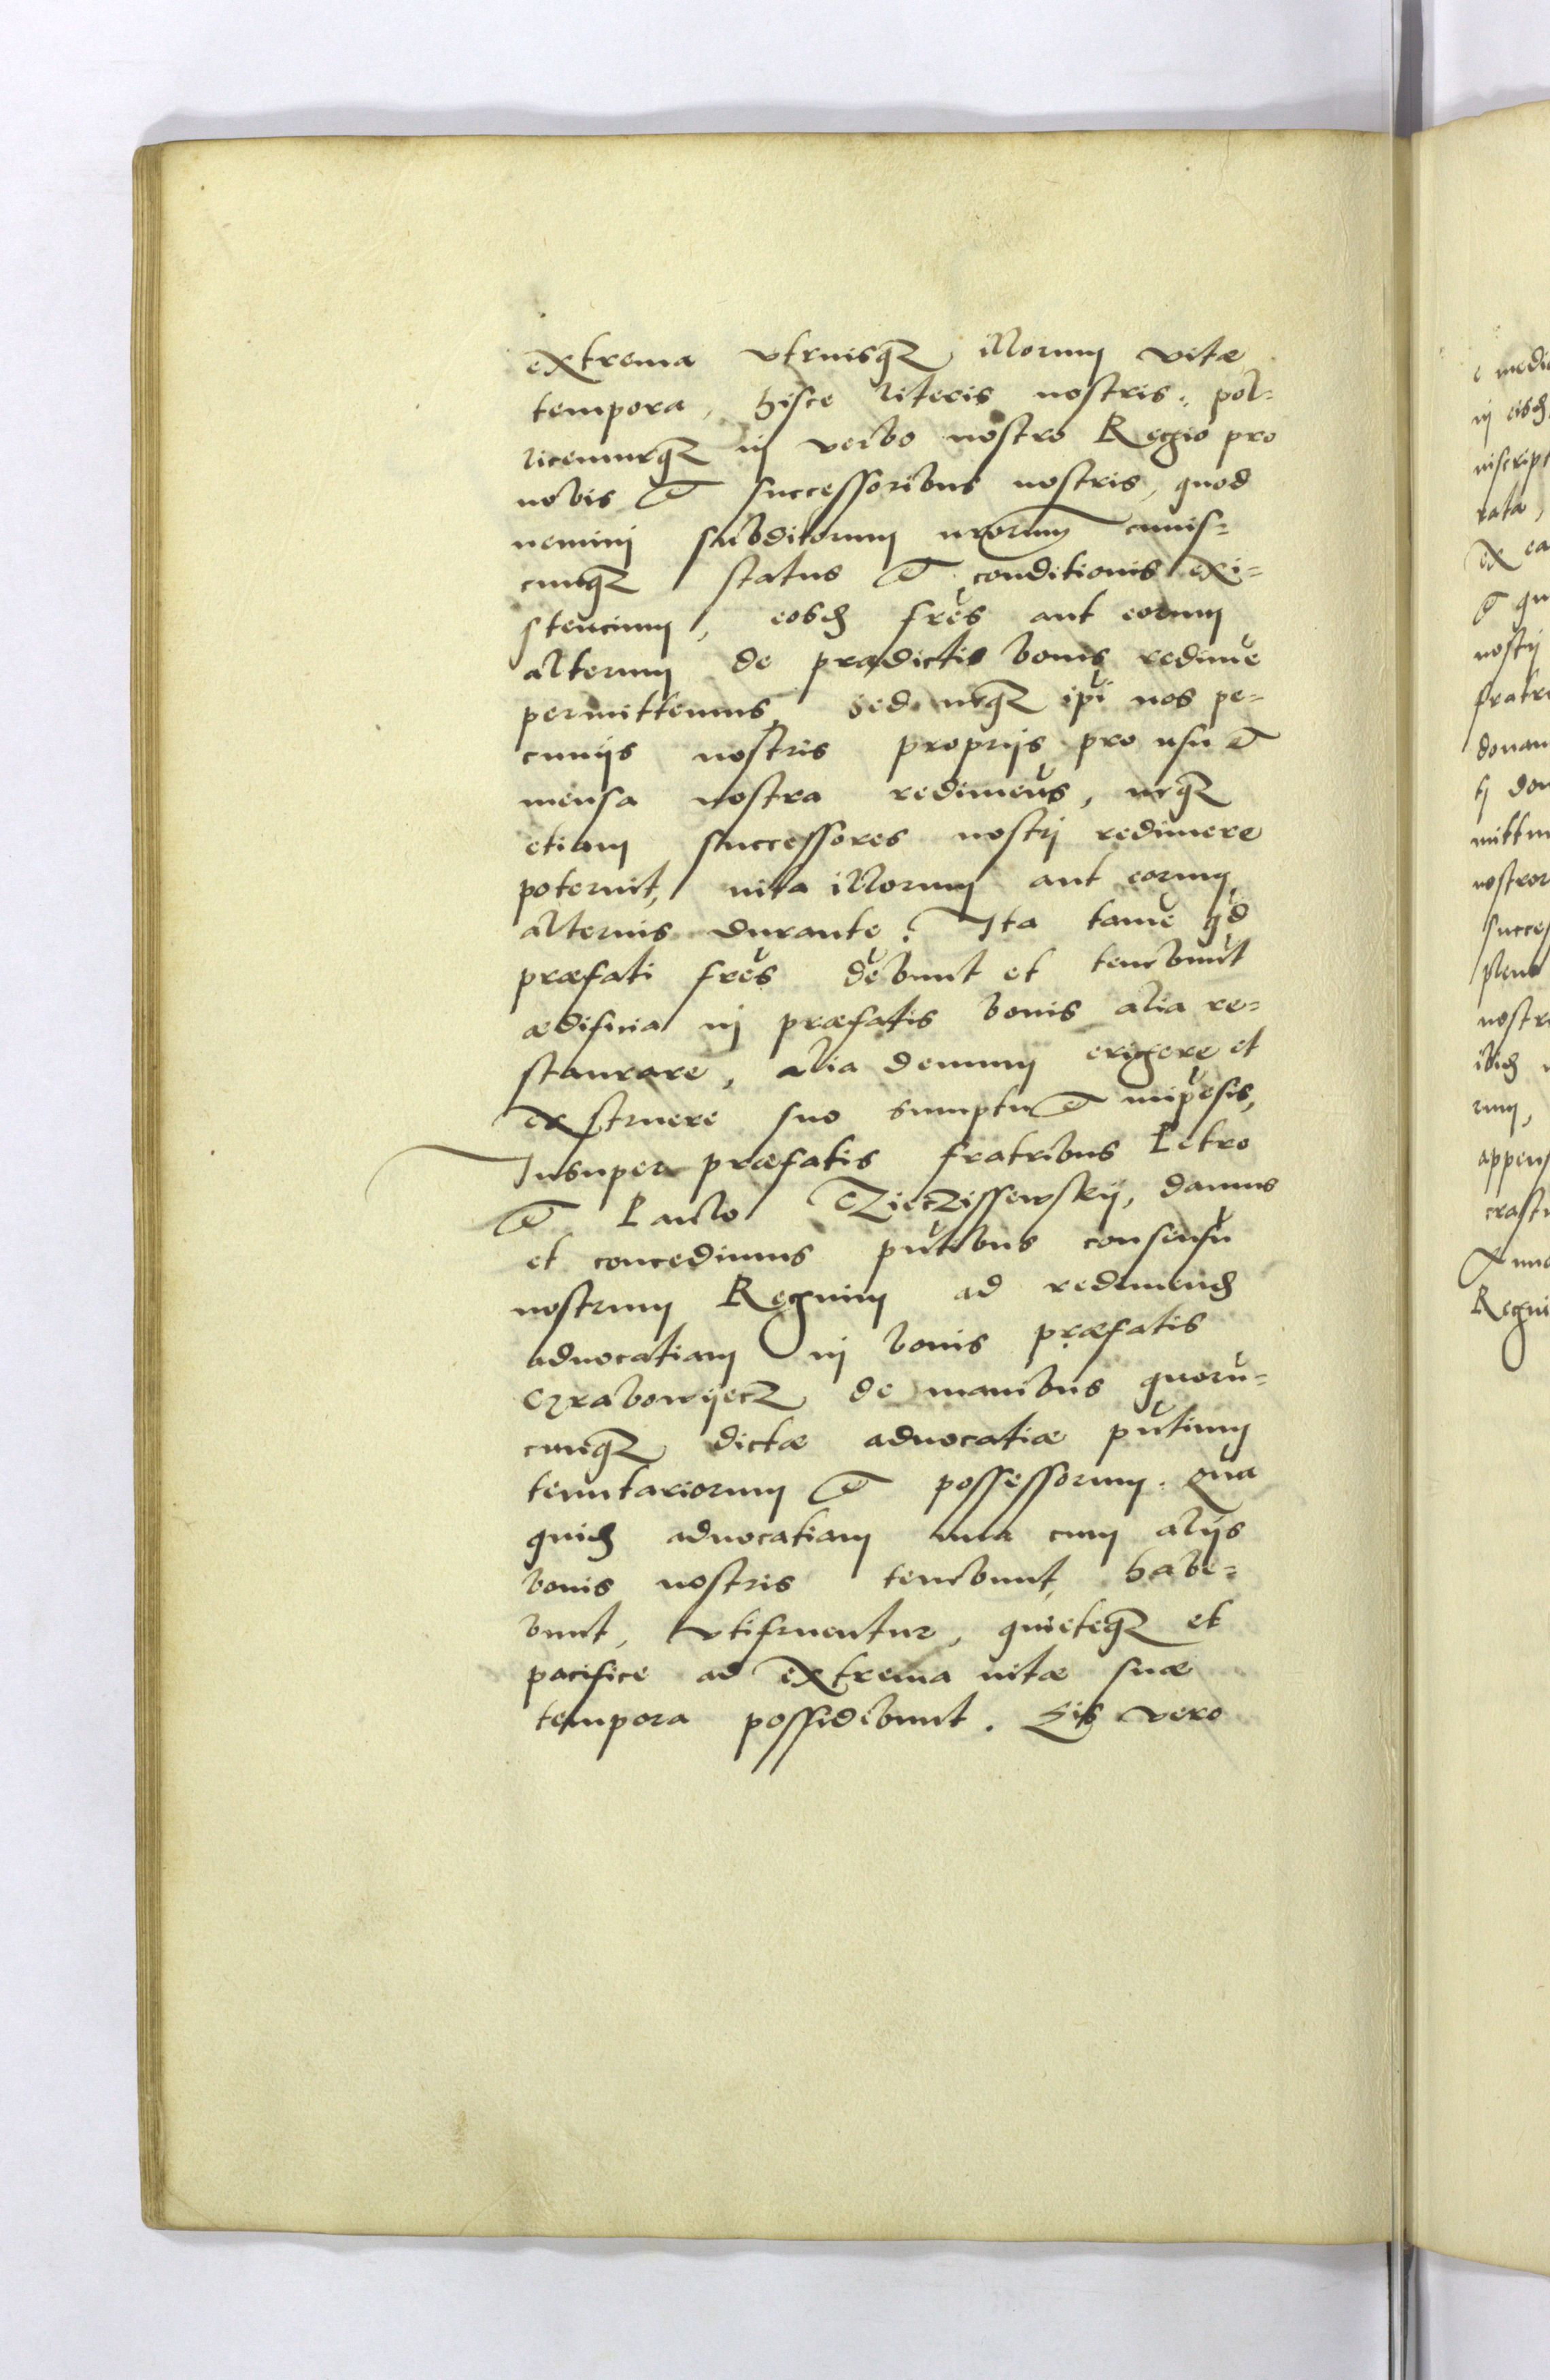 extrema vtriusq₃ illorum vitæ
tempora, hisce literis nostris, pol=
licemurq₃ in verbo nostro Regio pro
nobis et successoribus nostris, quod
nemini subditorum nrorum cuius=
cunq₃ status et conditionis exi=
stencium, eosd fres aut eorum
alterum de prædictis bonis redime
permittemus, sed neq₃ ipi nos pe=
cuniis nostris proprijs pro usu et
mensa nostra redimeus, neq₃
etiam successores nostri redimere
poterunt, uita illorum aut eorum
alterius durante. Ita tame qd
præfati fres debunt et tenebunt
ædificia in præfatis bonis alia re=
staurare, alia demum erigere et
exstruere suo sumptu et impesis,
Insuper præfatis fratribus Petro
et Paulo CzieczisSewskij, damus
et concedimus pntibus consensu
nostrum Regium ad redimend
aduocatiam in bonis præfatis
Czrabowyecz de manibus quoru=
cunq₃ dictæ aduocatiæ pntium
tenutariorum et possessorum. Qua
quid aduocatiam una cum aliis
bonis nostris tenebunt, habe=
bunt, vtifruentur, quieteq₃ et
pacifice ad extrema uitæ suæ
tempora possidebunt. His vero